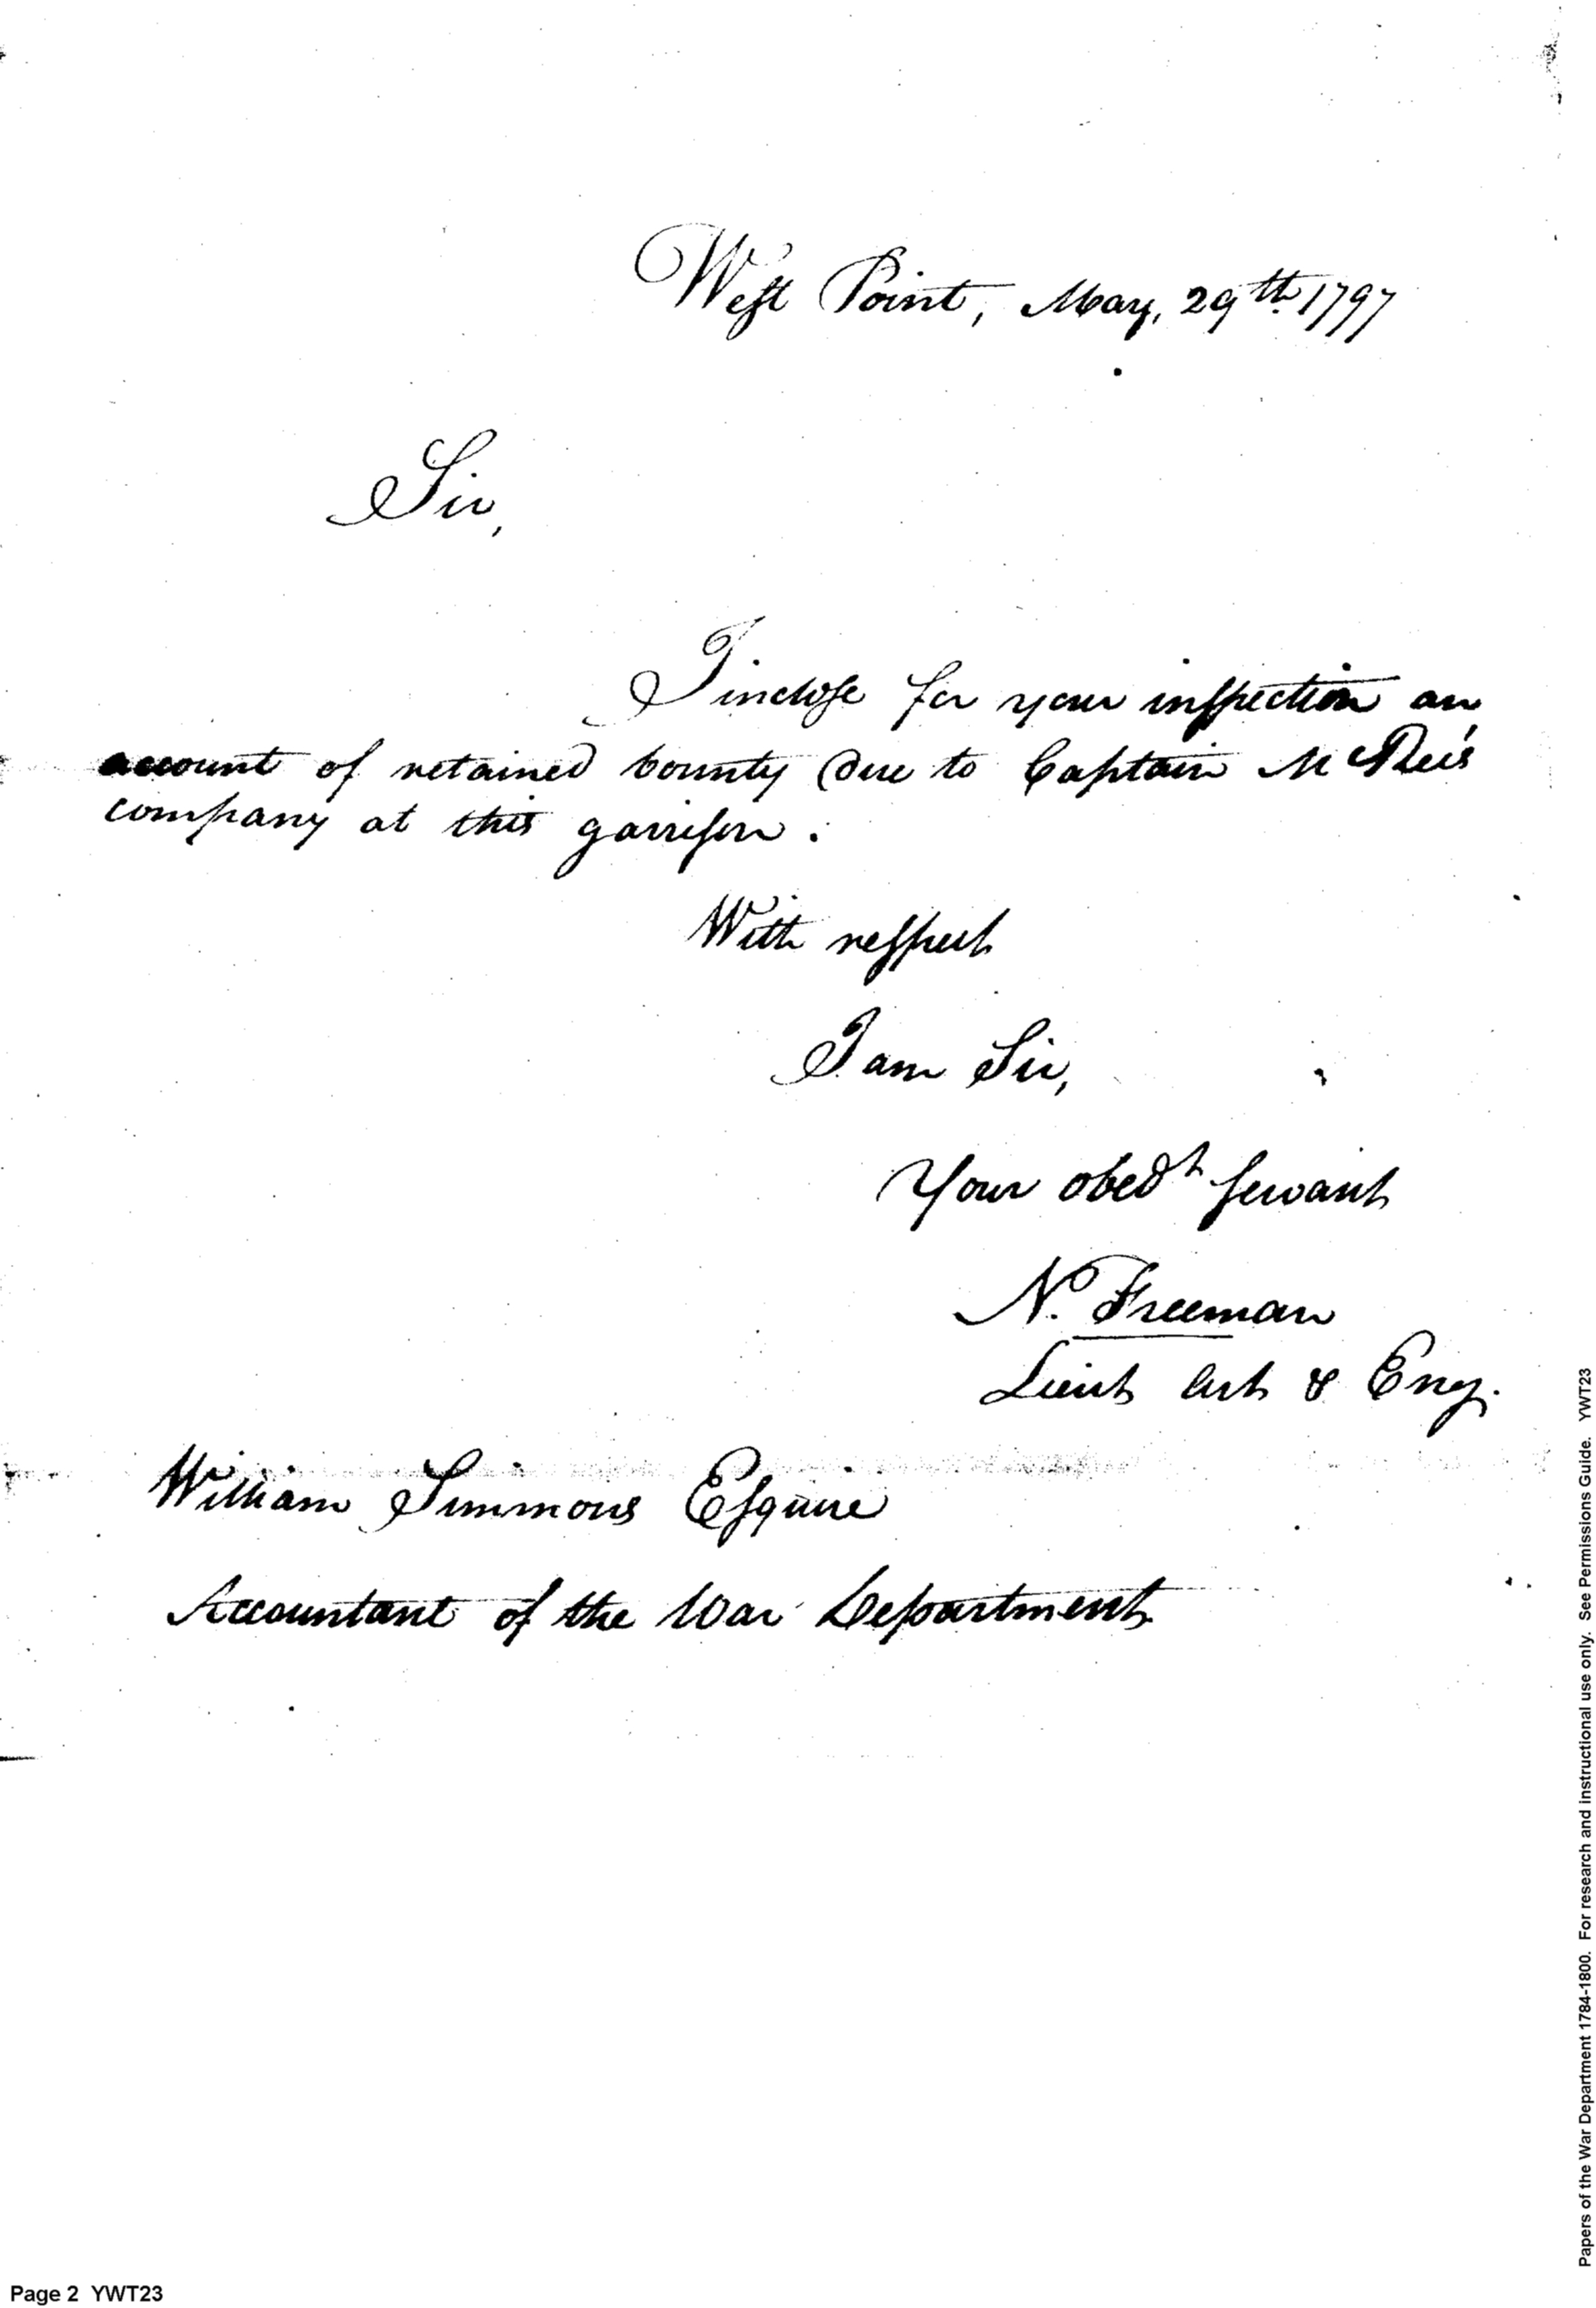 West Point, May, 29th. 1797
Sir,
I inclose for your inspection an
account of retained bounty due to Captain McRee's
company at this garrison.
With respect
I am Sir,
Your obedt servant
N. Freeman
Lieut Art & Eng.
William Simmons Esquire
Accountant of the War Department
Page 2 YWT23
Papers of the War Department 1784-1800. For research and instructional use only. See Permissions Guide. YWT23